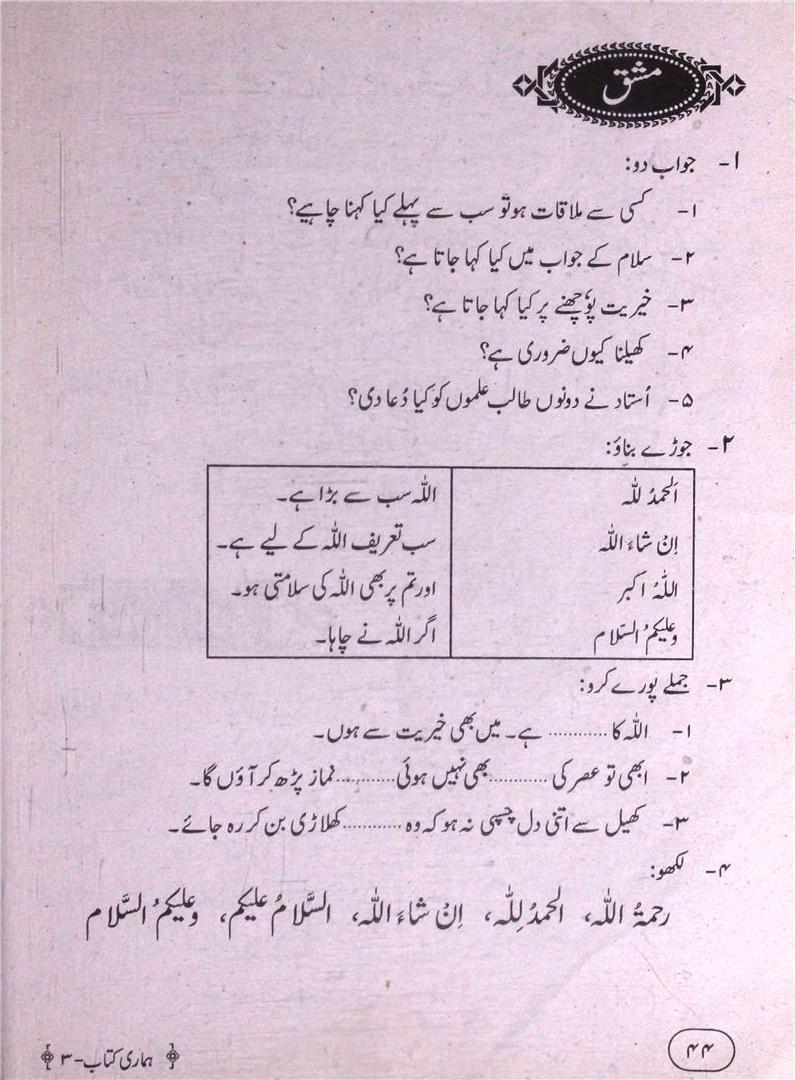 مشق
۱- جواب دو:
۱- کسی سے ملاقات ہو تو سب سے پہلے کیا کہنا چاہیے؟
۲- سلام کے جواب میں کیا کہا جاتا ہے؟
۳- خیریت پوٗچھنے پر کیا کہا جاتا ہے؟
۴- کھیلنا کیوں ضروری ہے؟
۵- اُستاد نے دونوں طالب علموں کو کیا دُعا دی؟
۲- جوڑے بناؤ:
اَلحمدُ للہ اللہ سب سے بڑا ہے۔
اِنْ شاءَ اللہ سب تعریف اللہ کے لیے ہے۔
اللہُ اکبر اور تم پر بھی اللہ کی سلامتی ہو۔
وعلیکمُ السّلام اگر اللہ نے چاہا۔
۳- جملے پورے کرو:
۱- اللہ کا ............ ہے۔ میں بھی خیریت سے ہوں۔
۲- ابھی تو عصر کی ............ بھی نہیں ہوئی ............ نماز پڑھ کر آؤں گا۔
۳- کھیل سے اتنی دل چسپی نہ ہو کہ وہ ............ کھلاڑی بن کر رہ جائے۔
۴- لکھو:
رحمۃُ اللہ، الحمدُ لِلّٰہ، اِنْ شاءَ اللہ، السَّلامُ علیکم، وعلیکمُ السَّلام
۴۴
ہماری کتاب-۳